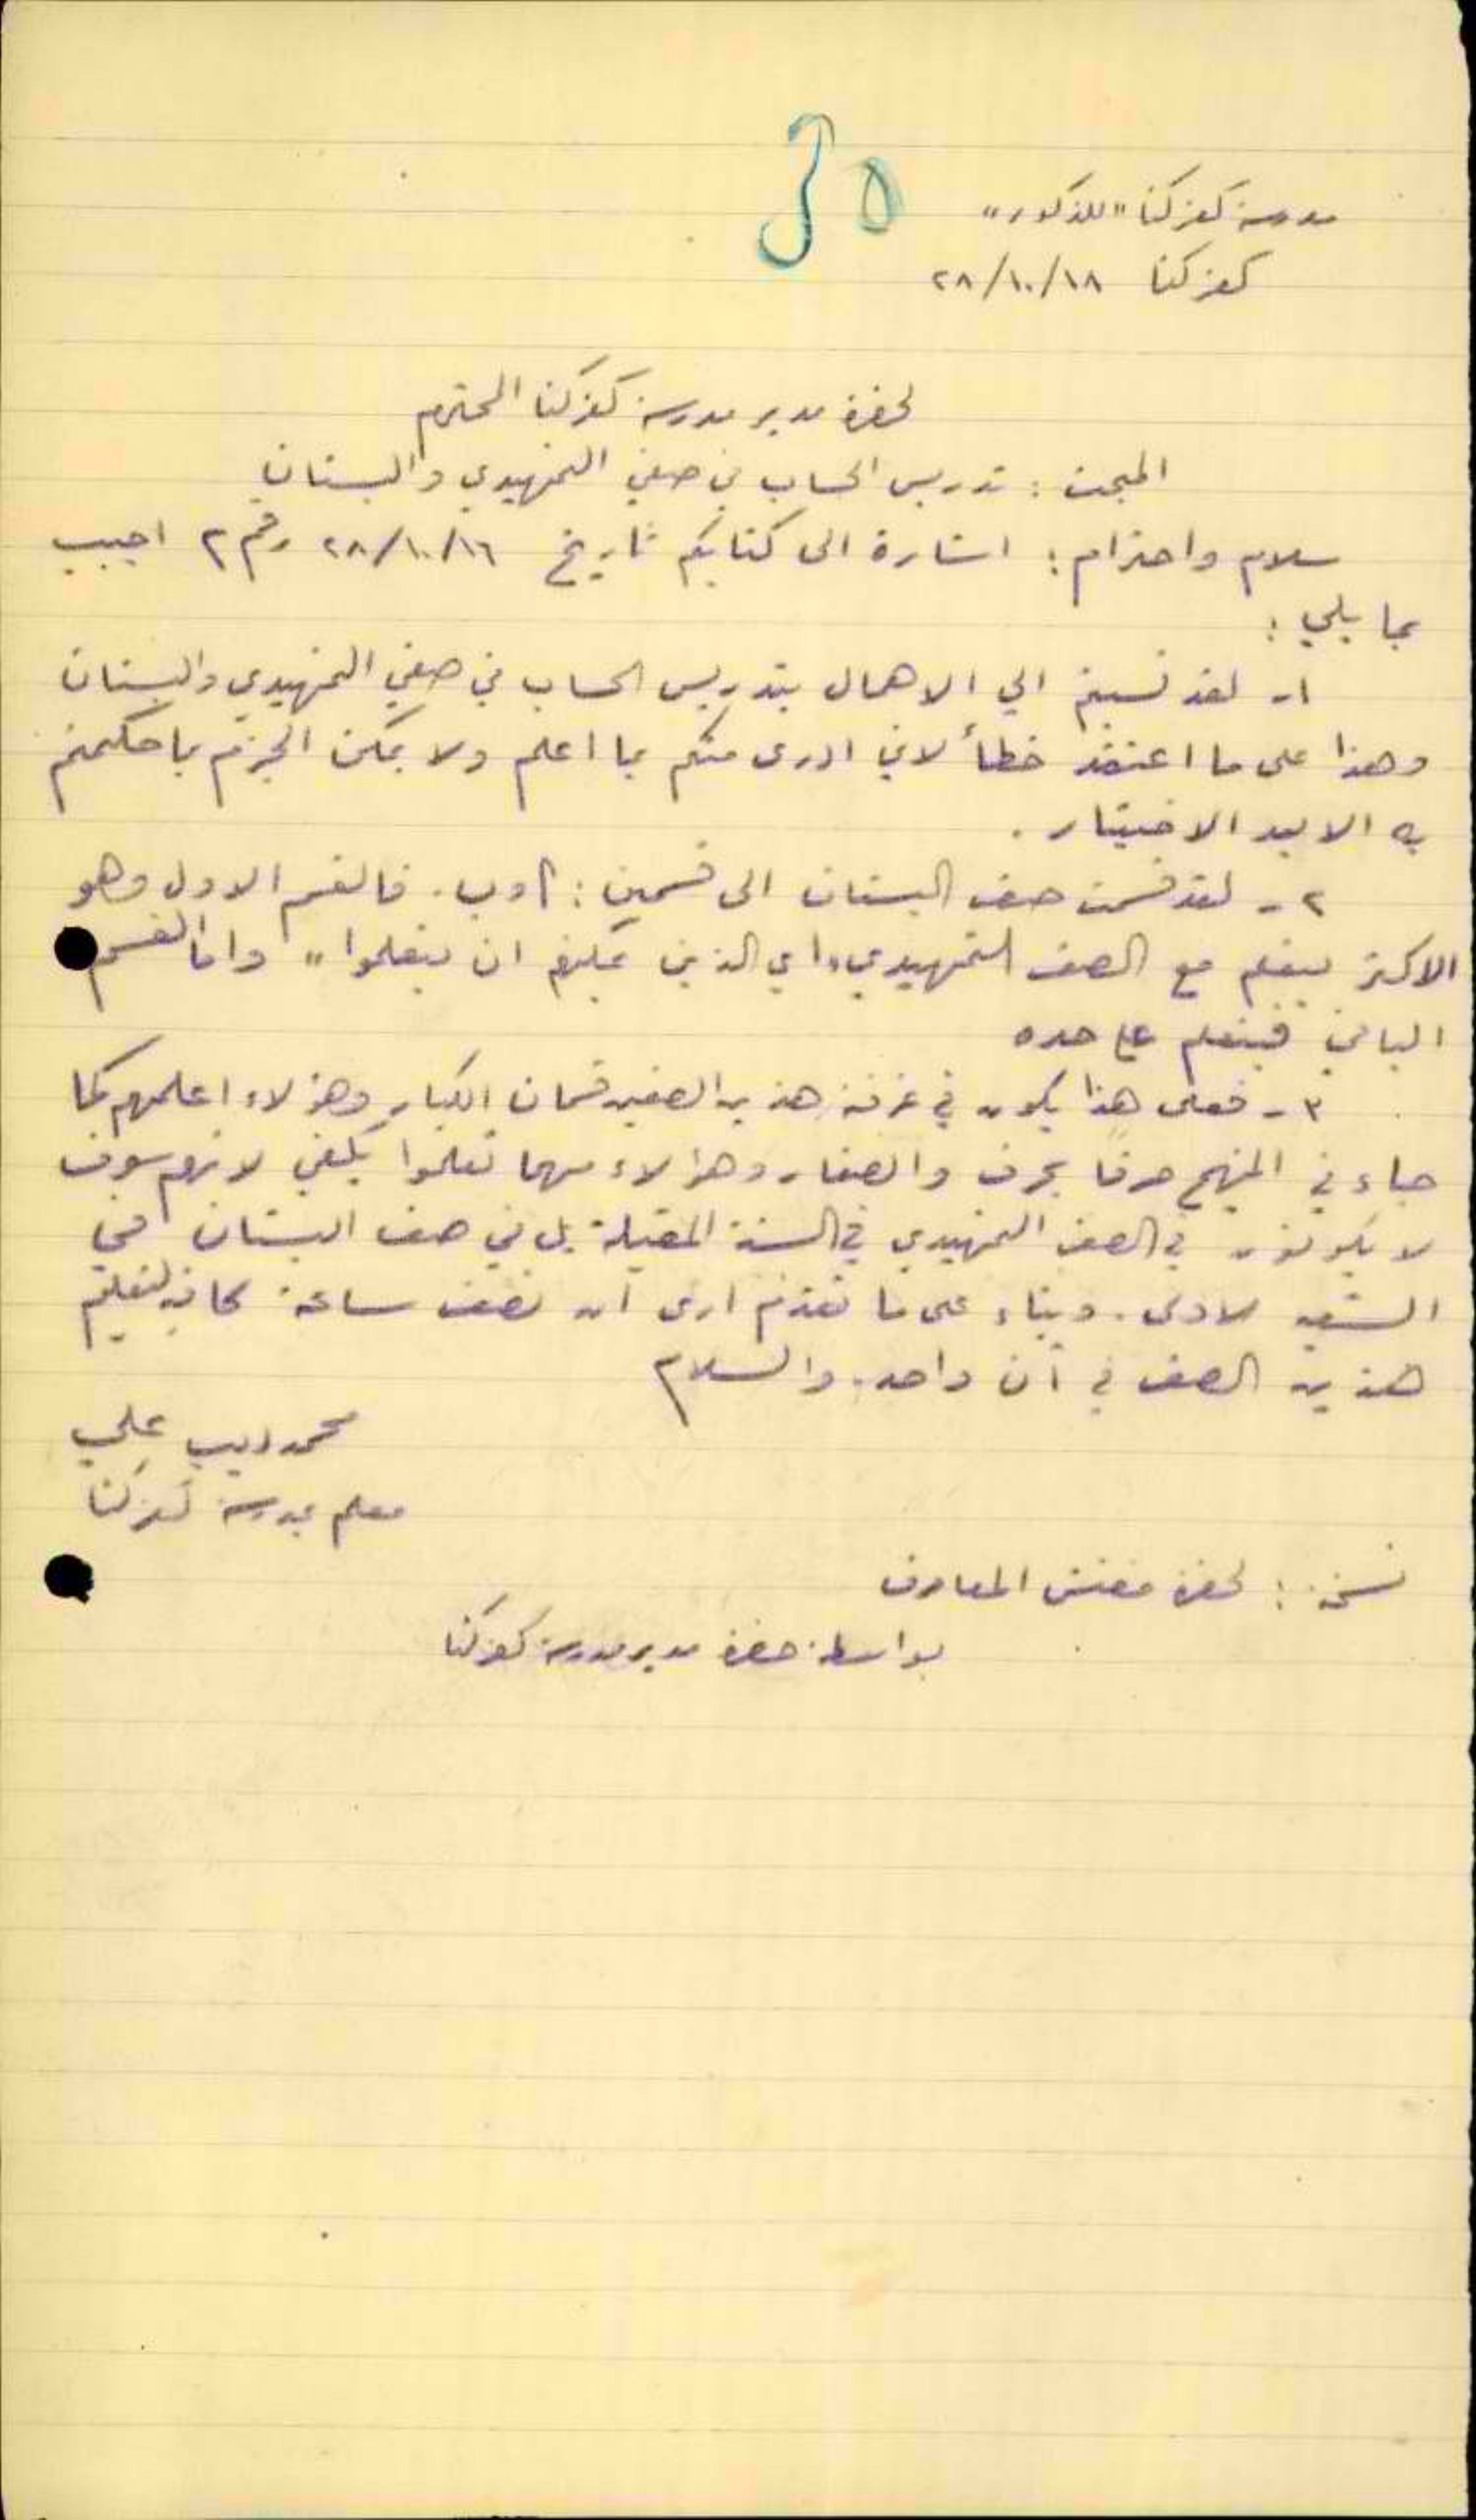 مدرسة كفركنا "للذكور"
كفركنا ٢٨/١٠/١٨
لحضرة مدير مدرسة كفركنا المحترم
المبحث : تدريس الحساب في صفي التمهيدي والبستان
سلام واحترام : اشارة الى كتابكم تاريخ ٢٨/١٠/١٦ رقم ٢ اجيب
بما يلي :
١- لقد نسبتم الي الاهمال بتدريس الحساب في صفي التمهيدي والبستان
وهذا على ما اعتقد خطأ لاني ادرى منكم بما اعلم ولا يمكن الجزم بما حكمتم
به الا بعد الاختبار .
٢- لقد قسمت صف البستان الى قسمين : أ وب . فالقسم الاول وهو
الاكبر يتعلم مع الصف التمهيدي "اي الذين يمكنهم ان يتعلموا" واما القسم
الثاني فيتعلم على حده
٣- فعلى هذا يكون في غرفة هذين الصفين قسمان الكبار وهؤلاء اعلمهم كما
جاء في المنهج حرفا بحرف والصغار وهؤلاء مهما تعلموا يكفي لانهم سوف
لا يكونون في الصف التمهيدي في السنة المقبلة بل في صف البستان في
الاولى . وبناء على ما تقدم ارى ان نصف ساعة كافية لتعليم
هذين الصف في آن واحد . والسلام
محمد ديب علي
معلم بمدرسة كفركنا
نسخة : لحضرة مفتش المعارف
بواسطة حضرة مدير مدرسة كفركنا